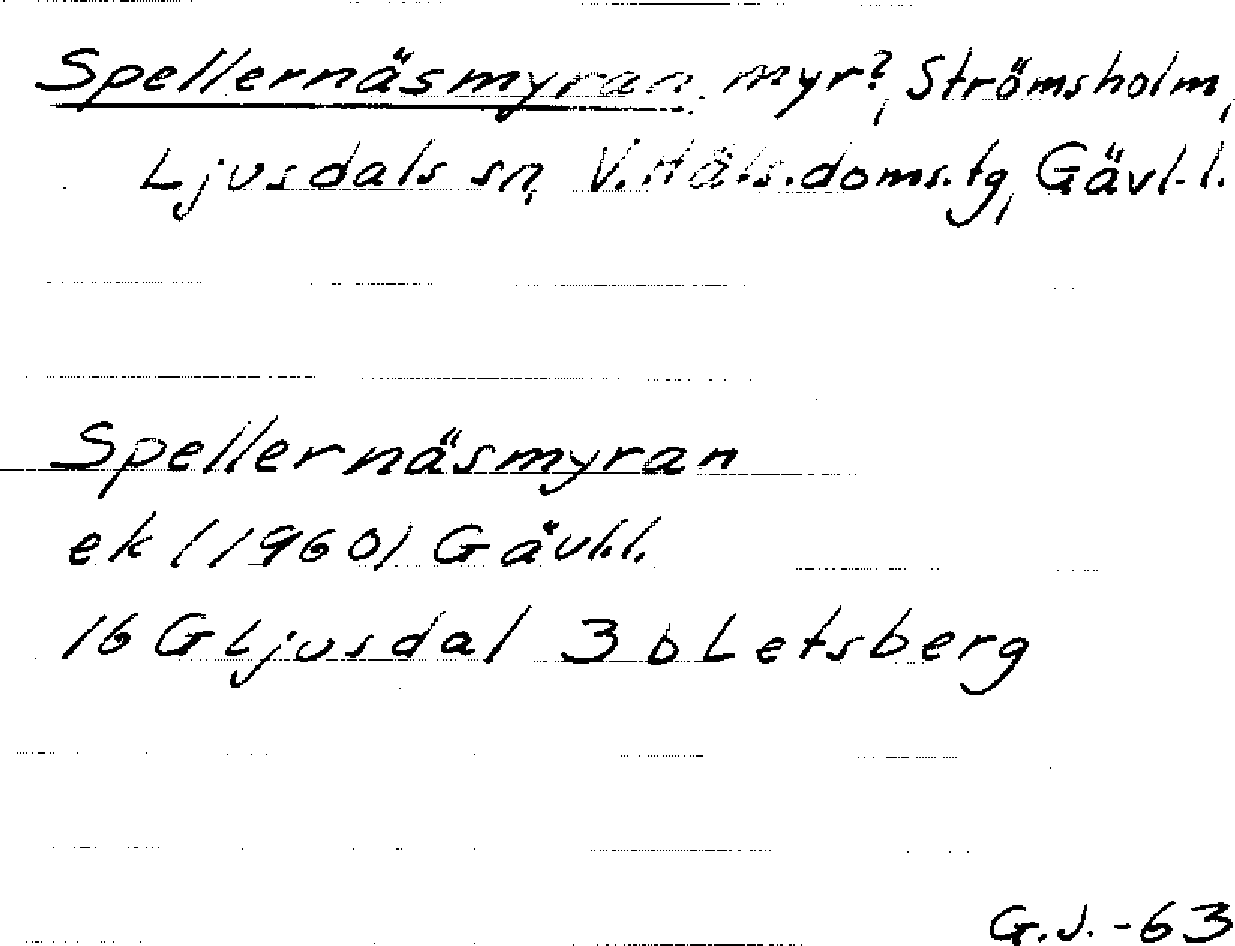 Spellernäsmyran, myr?, Strömsholm,
Ljusdals sn, V. Häls. doms. tg, Gävl. l.
Spellernäsmyran
ek (1960) Gävl. l.
16 G Ljusdal 3 b Letsberg
G. J. -63